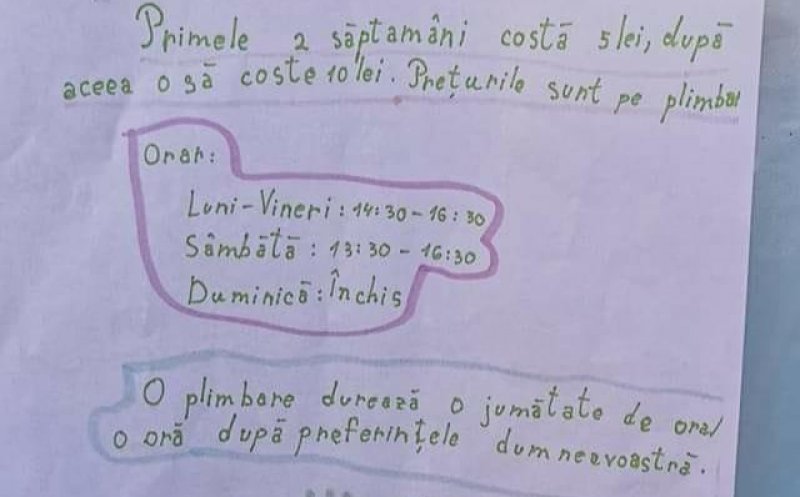 Primele 2 săptamâni costă 5 lei, după
aceea o să coste 10 lei. Prețurile sunt pe plimbar
Orar:
Luni-Vineri: 14:30-16:30
Sâmbătă: 13:30-16:30
Duminică: Închis
O plimbare durează o jumătate de oră/
o oră după preferințele dumneavoastră.